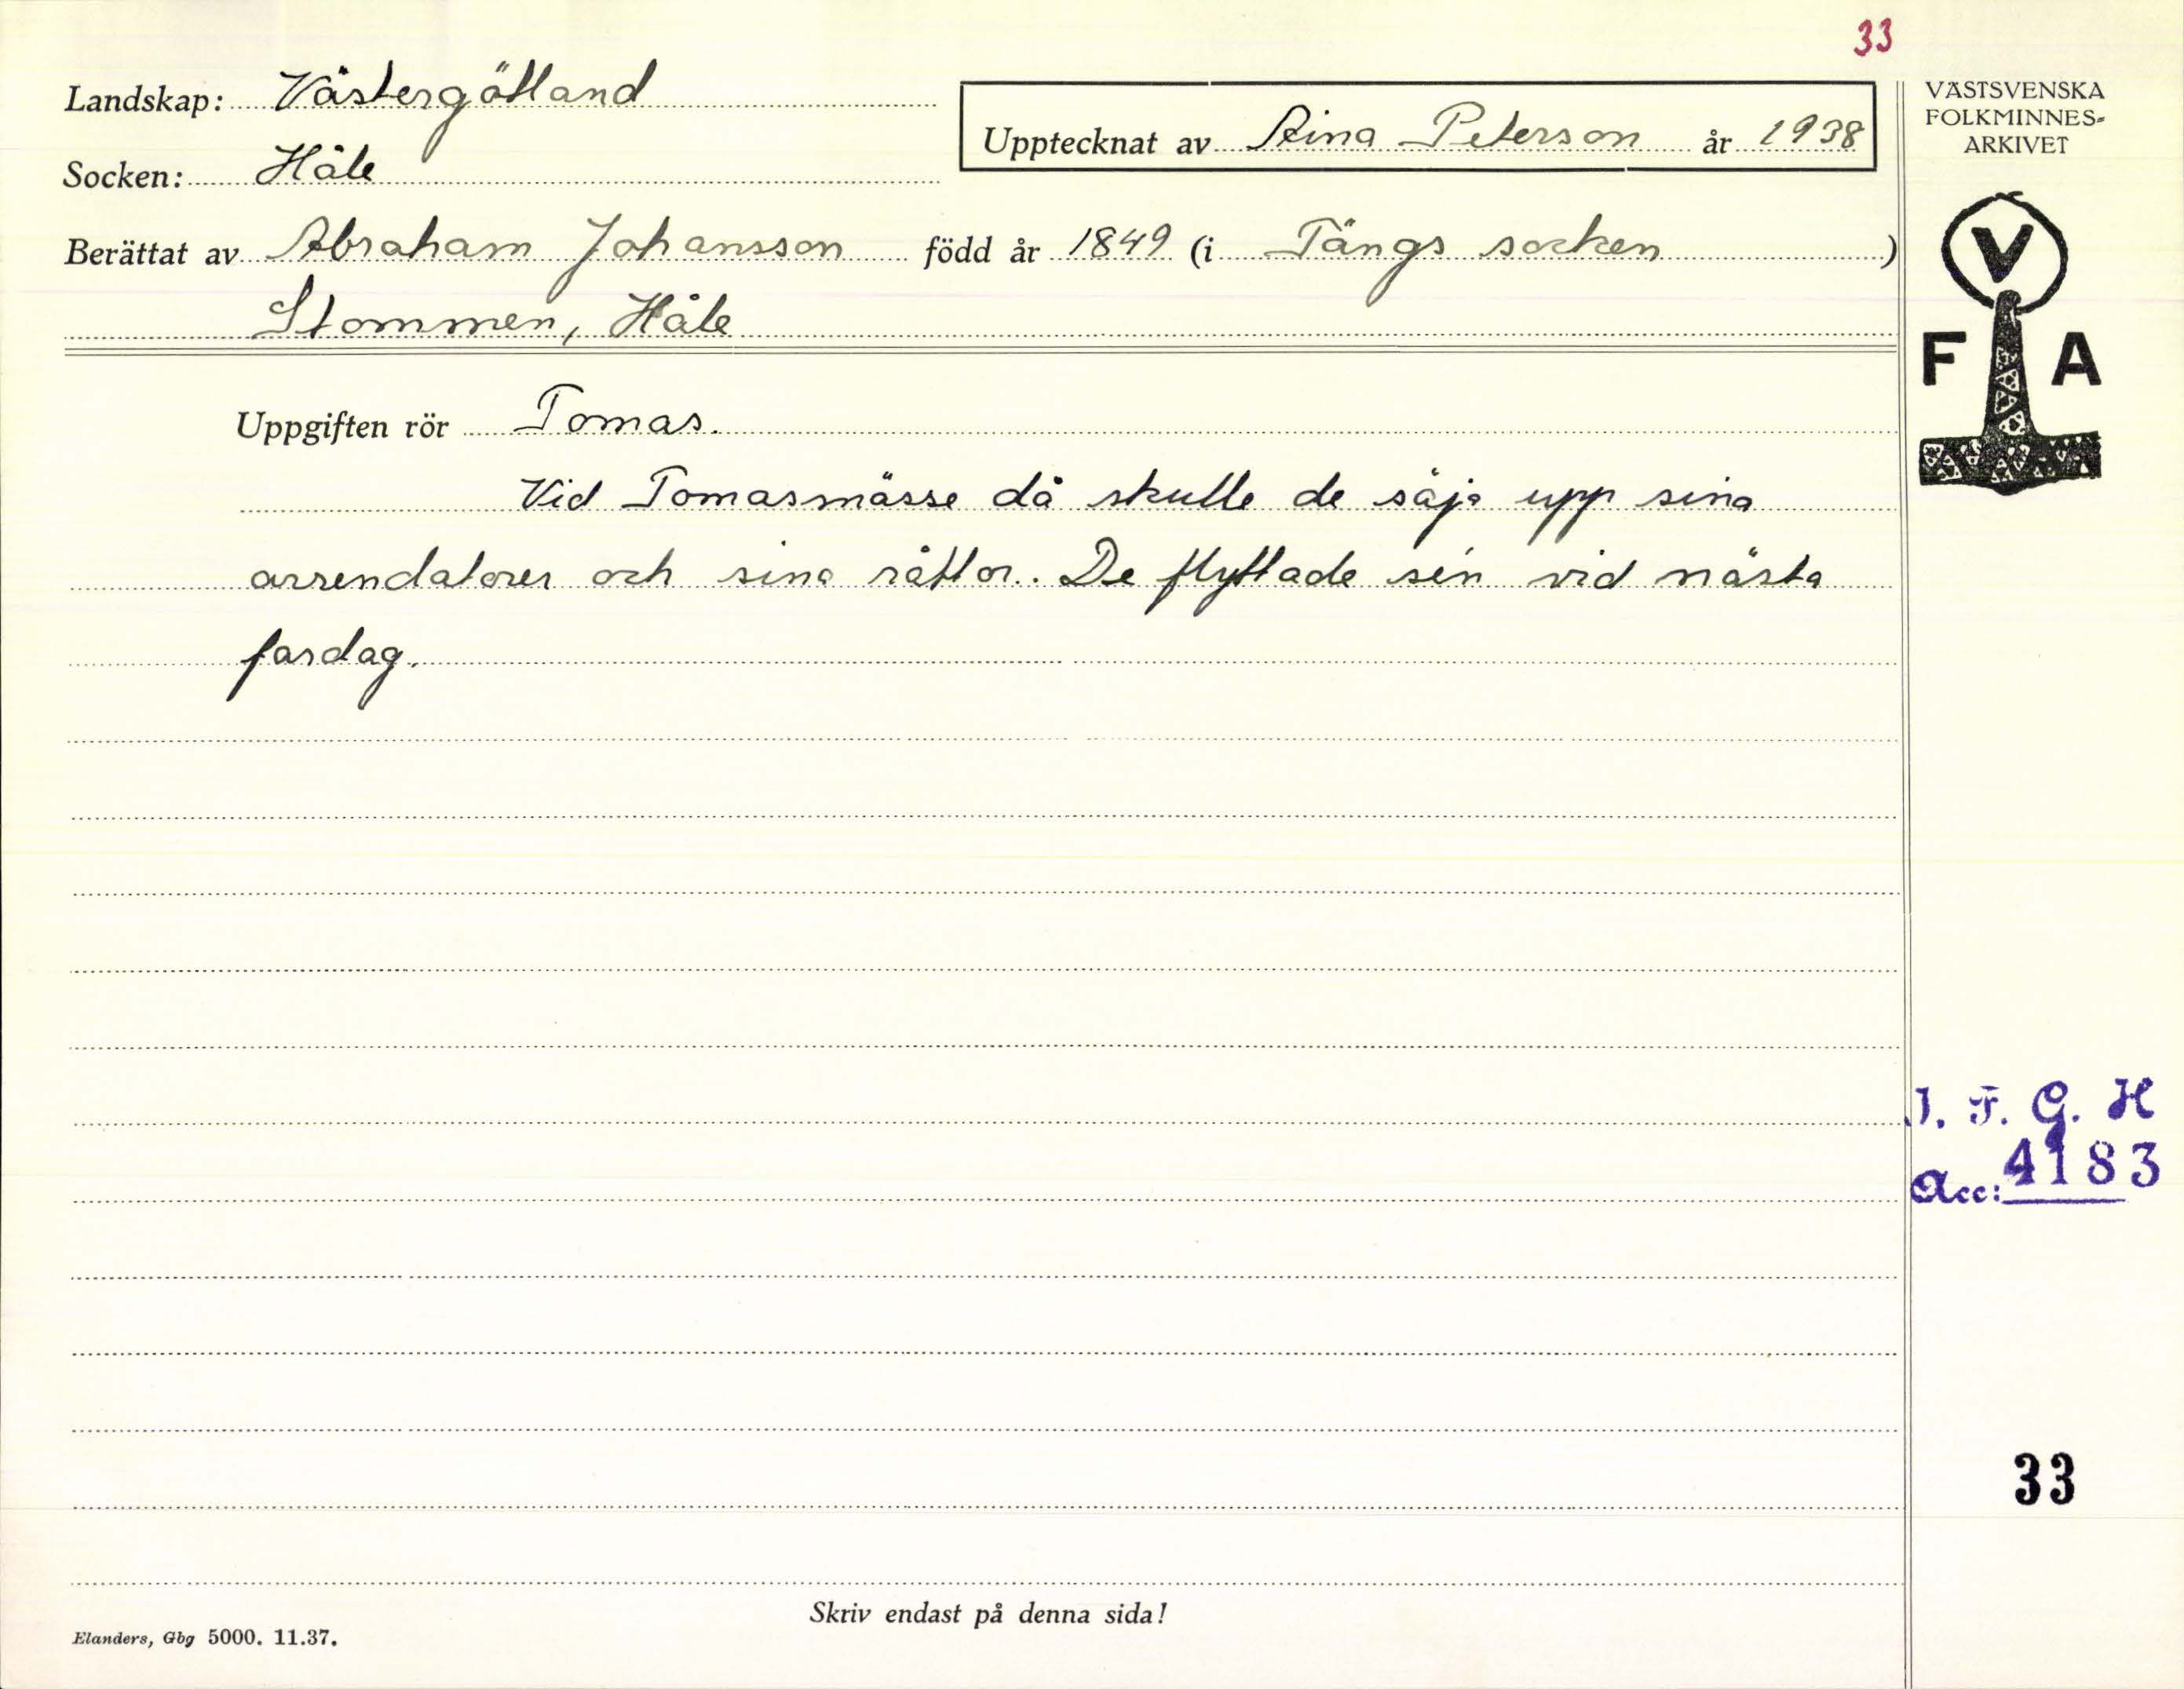 33
Landskap: Västergötland
Socken: Håle
Upptecknat av Aina Peterson år 1938
Berättat av Abraham Johansson född år 1849 (i Tängs socken)
Stommen, Håle
Uppgiften rör Tomas.
Vid Tomasmässe då skulle de säja upp sina
arrendatorer och sina råttor. De flyttade sén vid nästa
fardag.
VÄSTSVENSKA
FOLKMINNES-
ARKIVET
V
F A
I. F. G. H
Acc: 4183
33
Skriv endast på denna sida!
Elanders, Gbg 5000. 11.37.